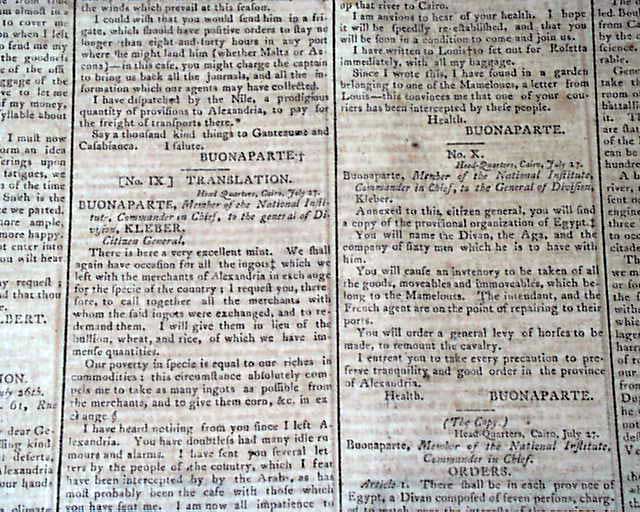 the winds which prevail at this season.
I could wish that you would send him in a fri-
gate, which should have positive orders to stay no
longer than eight-and-forty hours in any port
where she might land him (whether Malta or An-
cona)—in this case, you might charge the captain
to bring us back all the journals, and all the in-
formation which our agents may have collected.
I have dispatched by the Nile, a prodigious
quantity of provisions to Alexandria, to pay for
the freight of transports there.*
Say a thousand kind things to Ganteaume and
Casabianca. I salute.
BUONAPARTE†
[No. IX.] TRANSLATION.
Head Quarters, Cairo, July 27.
BUONAPARTE, Member of the National Insti-
tute, Commander in Chief, to the general of Di-
vision, KLEBER.
Citizen General,
There is here a very excellent mint. We shall
again have occasion for all the ingots‡ which we
left with the merchants of Alexandria in exchange
for the specie of the country; I request you, there
fore, to call together all the merchants with
whom the said ingots were exchanged, and to re-
demand them. I will give them in lieu of the
bullion, wheat, and rice, of which we have im
mense quantities.
Our poverty in specie is equal to our riches in
commodities; this circumstance absolutely com-
pels me to take as many ingots as possible from
the merchants, and to give them corn, &c. in ex
change.§
I have heard nothing from you since I left A-
lexandria. You have doubtless had many idle ru
mours and alarms. I have sent you several let
ters by the people of the country, which I fear
have been intercepted by by the Arabs, as has
most probably been the case with those which
you have sent me. I am now all impatience to
up that river to Cairo.
I am anxious to hear of your health. I hope
it will be speedily re-established, and that you
will be soon in a condition to come and join us.
I have written to Louis† to set out for Rosetta
immediately, with all my baggage.
Since I wrote this, I have found in a garden
belonging to one of the Mamelones, a letter from
Louis—this convinces me that one of your cou-
riers has been intercepted by these people.
Health.
BUONAPARTE.
No. X.
Head-Quarters, Cairo, July 27.
Buonaparte, Member of the National Institute,
Commander in Chief, to the General of Division,
Kleber.
Annexed to this, citizen general, you will find
a copy of the provisional organization of Egypt.‡
You will name the Divan, the Aga, and the
company of sixty men which he is to have with
him.
You will cause an invtenory to be taken of all
the goods, moveables and immoveables, which be-
long to the Mamelouts. The intendant, and the
French agent are on the point of repairing to their
ports.
You will order a general levy of horses to be
made, to remount the cavalry.
I entreat you to take every precaution to pre-
serve tranquility and good order in the province
of Alexandria.
Health. BUONAPARTE.
(The Copy.)
Head-Quarters, Cairo, July 27.
Buonaparte, Member of the National Institute,
Commander in Chief.
ORDERS.
Article 1. There shall be in each province of
Egypt, a Divan composed of seven persons, charg-